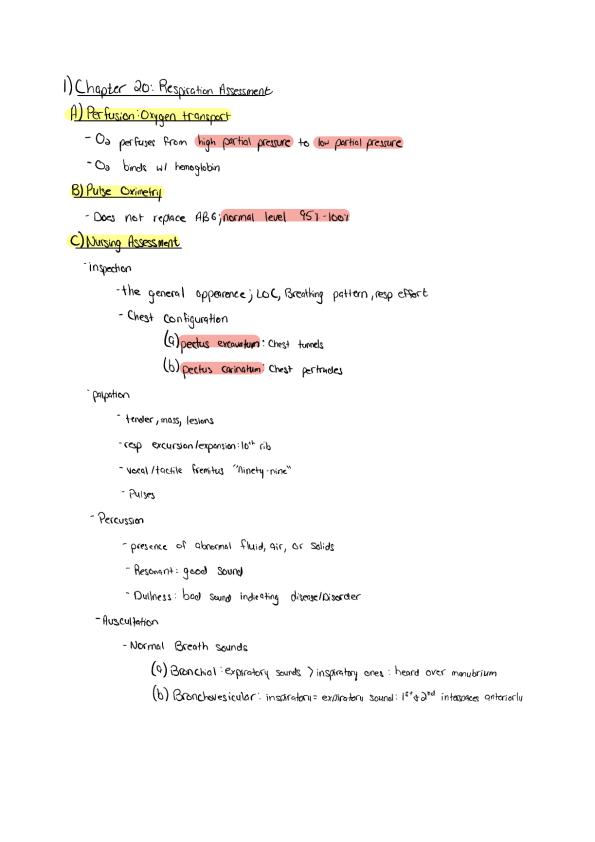 1) Chapter 20: Respiration Assessment
A) Perfusion: Oxygen transport
- O2 perfuses from high partial pressure to low partial pressure
- O2 binds w/ hemoglobin
B) Pulse Oximetry
- Does not replace ABG; normal level 95%-100%
C) Nursing Assessment
- inspection
- the general apperence; LOC, Breathing pattern, resp effort
- Chest configuration
(a) pectus excavatum: Chest tunnels
(b) pectus carinatum: Chest pertrudes
- palpation
- tender, mass, lesions
- resp excursion/expansion: 10th rib
- vocal/tactile fremitus "Ninety-nine"
- Pulses
- Percussion
- presence of abnormal fluid, air, or solids
- Resonant: good sound
- Dullness: bad sound indicating disease/Disorder
- Auscultation
- Normal Breath sounds
(a) Bronchial: expiratory sounds > inspiratory ones: heard over manubrium
(b) Bronchovesicular: inspiratory = expiratory sound: 1st & 2nd interspaces anteriorly